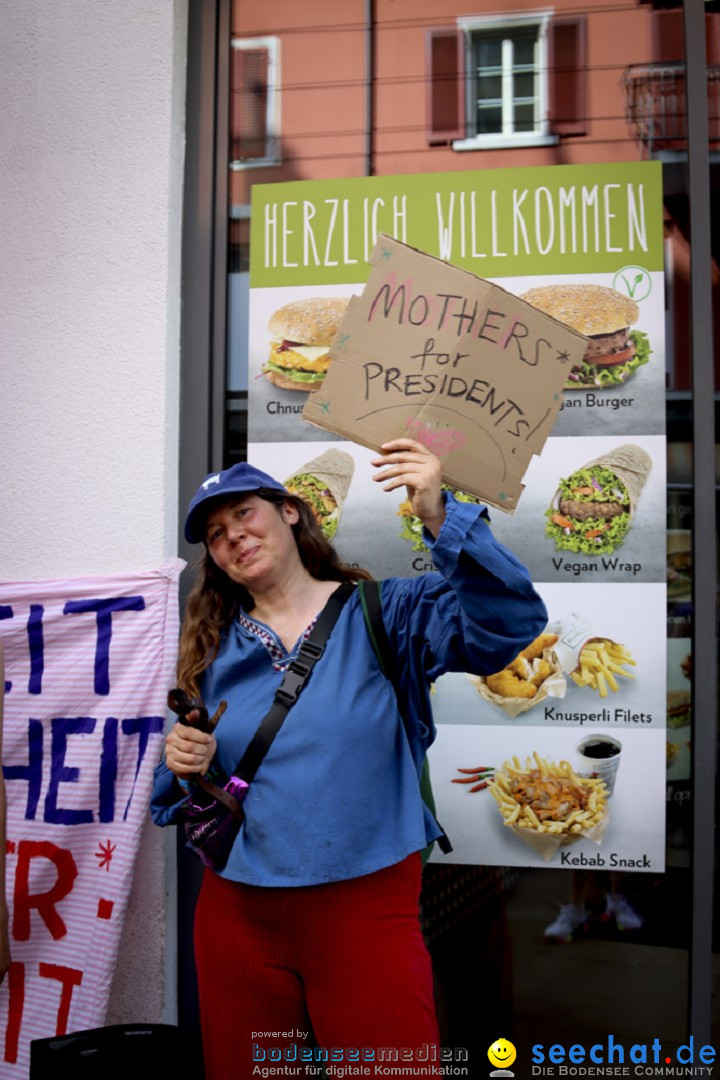 HERZLICH WILLKOMMEN
MOTHERS
for
PRESIDENTS!
Chnus
gan Burger
Cris
Vegan Wrap
Knusperli Filets
Kebab Snack
EIT
HEIT
ER.
IT
powered by
bodensee-medien
Agentur für digitale Kommunikation
seechat.de
DIE BODENSEE COMMUNITY